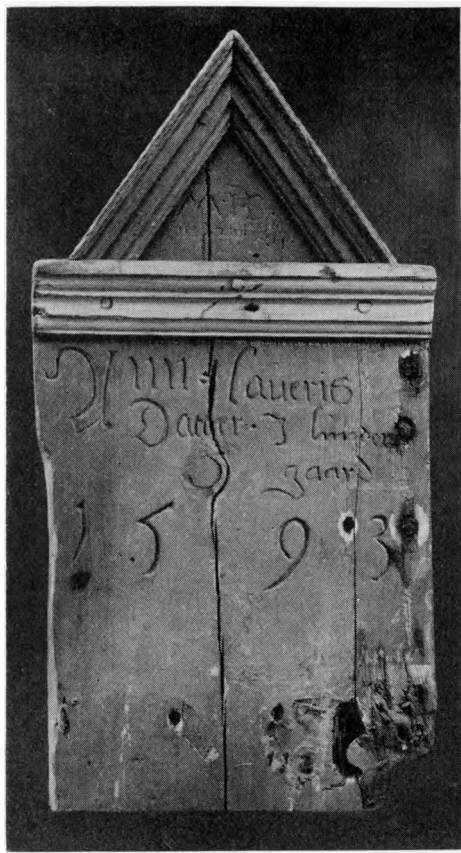 Anni • Laueris
Datter • J lunder
gaard
1593